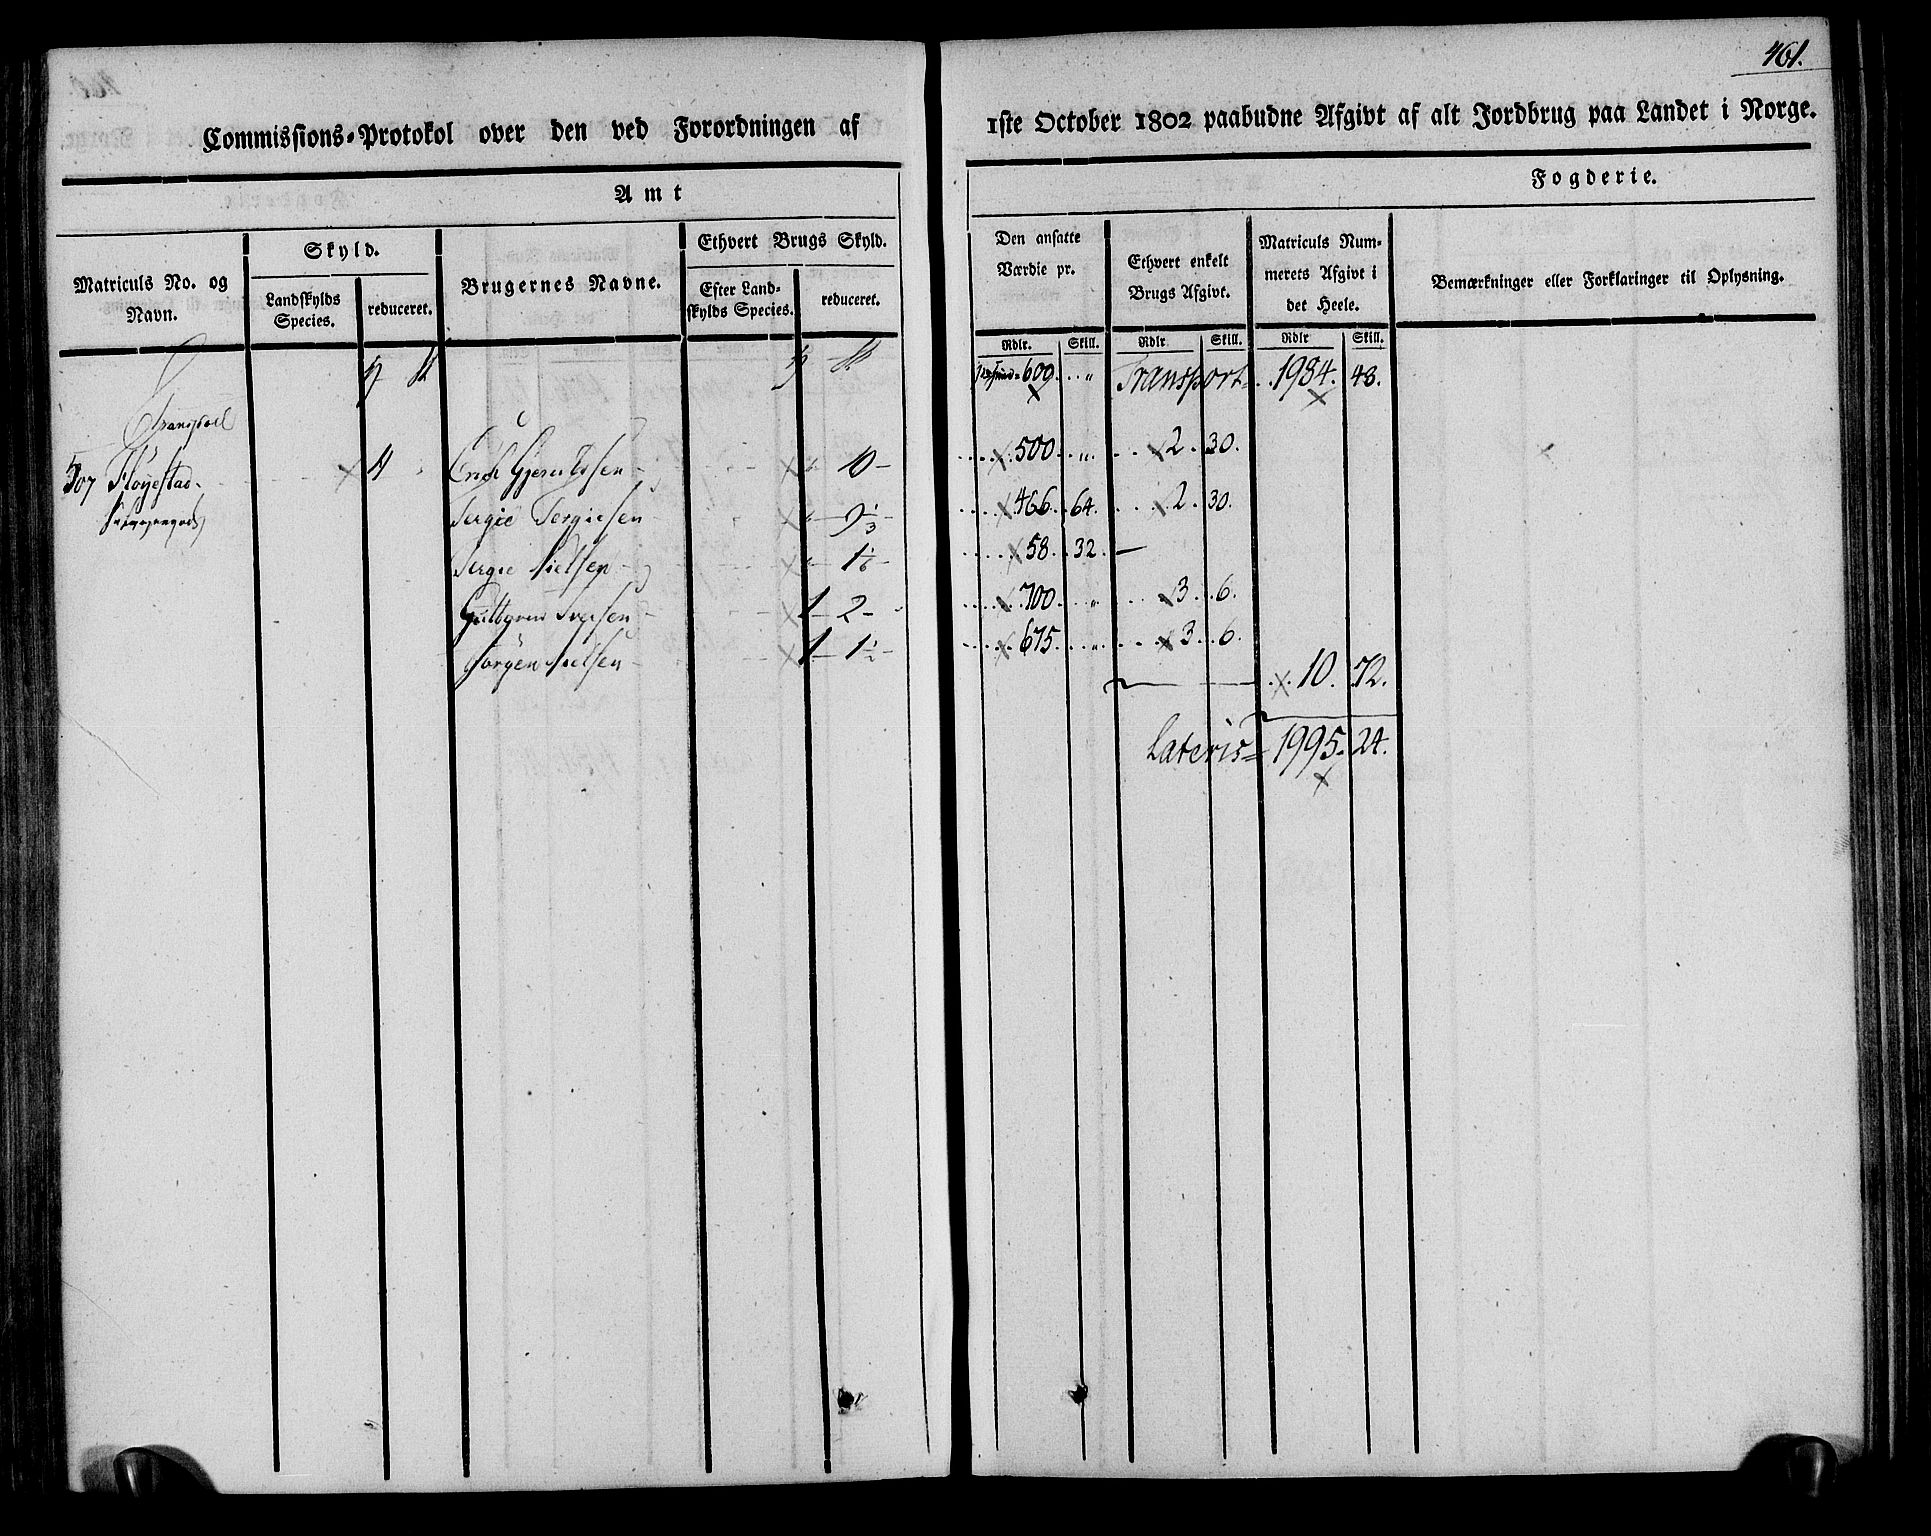 461.
Commissions-Protokol over den ved Forordningen af 1ste October 1802 paabudne Afgivt af alt Jordbrug paa Landet i Norge.
Amt
Fogderie.
Matriculs No. og Navn.
Skyld.
Landskylds Species.
reduceret.
Brugernes Navne.
Ethvert Brugs Skyld.
Efter Landskylds Species.
reduceret.
Den ansatte Værdie pr.
Ethvert enkelt Brugs Afgivt.
Matriculs Nummerets Afgivt i det Heele.
Bemærkninger eller Forklaringer til Oplysning.
Rdlr. Skill. Rdlr Skill. Rdlr Skill.
600 „ Transport 1984. 48.
507 Fløyestad 4 10 500 „ 2. 30.
Tergie Tergiesen 9 1/3 466. 64. 2. 30.
Tergie Nielsen 1 1/6 58. 32. —
Guttorm Iversen 1 — 2 — 700. „ 3. 6.
Jørgen Nielsen 1 — 1 1/2 — 675. „ 3. 6.
10. 72.
Lateris = 1995. 24.